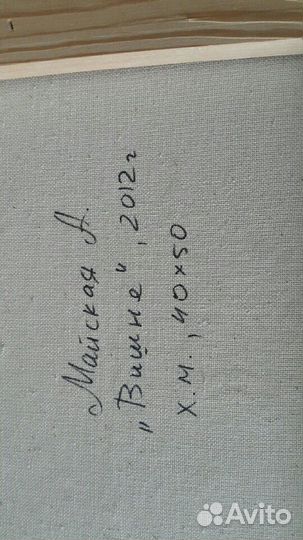 Майская А.
"Вишне", 2012г
х.м., 40x50
Avito